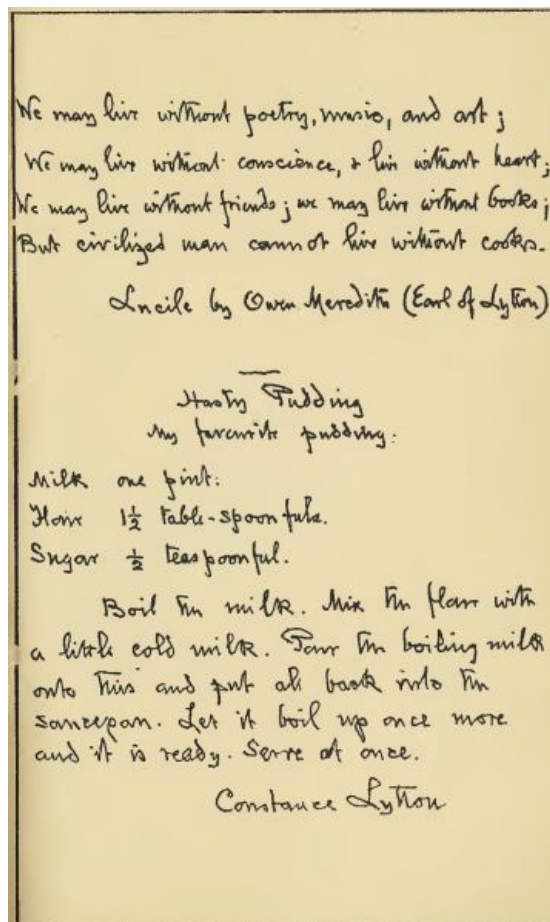 We may live without poetry, music, and art;
We may live without conscience, & live without heart;
We may live without friends; we may live without books;
But civilized man cannot live without cooks.
Lucile by Owen Meredith (Earl of Lytton)
Hasty Pudding
My favourite pudding:
Milk one pint:
Flour 1½ table-spoonfuls.
Sugar ½ teaspoonful.
Boil the milk. Mix the flour with
a little cold milk. Pour the boiling milk
onto this and put all back into the
saucepan. Let it boil up once more
and it is ready. Serve at once.
Constance Lytton